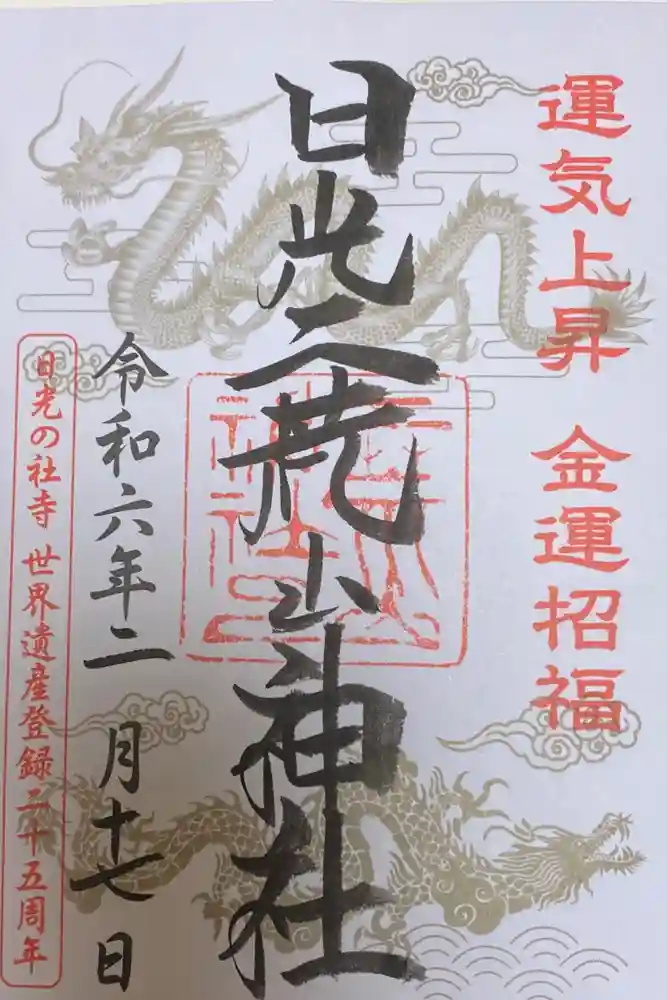 運気上昇 金運招福
日光二荒山神社
令和六年二月十七日
日光の社寺 世界遺産登録二十五周年